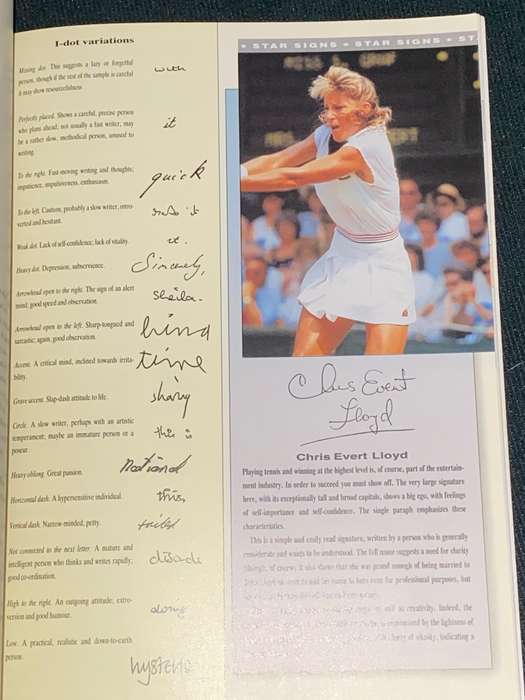 I-dot variations
Missing dot. This suggests a lazy or forgetful
person, though if the rest of the sample is careful
it may show resourcefulness.
with
Perfectly placed. Shows a careful, precise person
who plans ahead; not usually a fast writer, may
be a rather slow, methodical person, unused to
writing.
it
To the right. Fast-moving writing and thoughts;
impatience, impulsiveness, enthusiasm.
quick
To the left. Caution, probably a slow writer, intro-
verted and hesitant.
it
Weak dot. Lack of self-confidence; lack of vitality.
it.
Heavy dot. Depression, subservience.
Sincerely,
Arrowhead open to the right. The sign of an alert
mind; good speed and observation.
Sheila.
Arrowhead open to the left. Sharp-tongued and
sarcastic; again, good observation.
kind
Accent. A critical mind, inclined towards irrita-
bility.
time
Grave accent. Slap-dash attitude to life.
shiny
Circle. A slow writer, perhaps with an artistic
temperament; maybe an immature person or a
poseur.
this is
Heavy oblong. Great passion.
national
Horizontal dash. A hypersensitive individual.
this
Vertical dash. Narrow-minded, petty.
failed
Not connected to the next letter. A mature and
intelligent person who thinks and writes rapidly;
good co-ordination.
High to the right. An outgoing attitude; extro-
version and good humour.
along
Low. A practical, realistic and down-to-earth
person.
hysteria
• STAR SIGNS • STAR SIGNS • ST
Chris Evert
Lloyd
Chris Evert Lloyd
Playing tennis and winning at the highest level is, of course, part of the entertain-
ment industry. In order to succeed you must show off. The very large signature
here, with its exceptionally tall and broad capitals, shows a big ego, with feelings
of self-importance and self-confidence. The single paragraph emphasizes these
characteristics.
This is a simple and easily read signature, written by a person who is generally
considerate and wants to be understood. The full name suggests a need for clarity
though, of course, it also shows that she was proud enough of being married to
to use his name to born even for professional purposes, but
as well as creativity. Indeed, the
is emphasized by the lightness of
indicating a